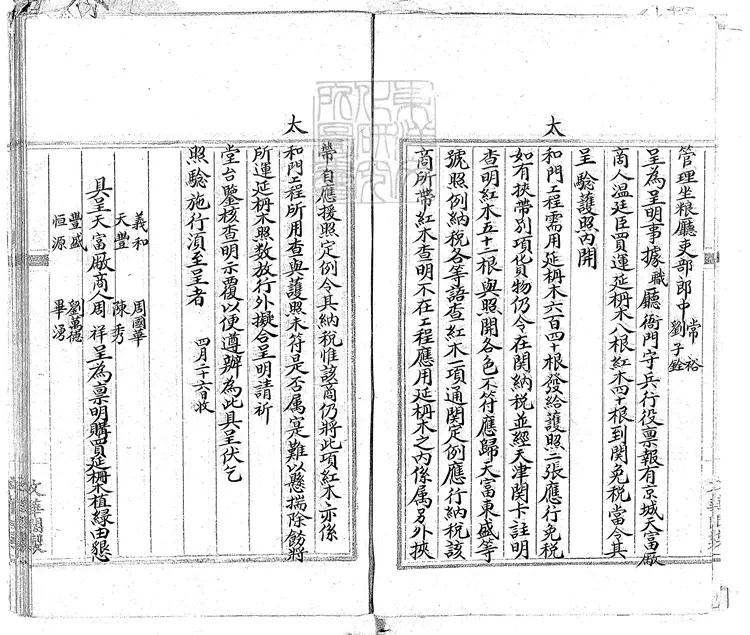 管理坐粮廳吏部郎中常裕劉子銓
呈為呈明事據職廳衙門守兵行役禀報有京城天富厰
商人温廷臣買運延楠木八根紅木四十根到関免税當令其
呈驗護照內開
太
和門工程需用延楠木六百四十根發給護照二張應行免税
如有挾帶別項貨物仍令在関納税並經天津関卡註明
查明紅木五十二根與照開各色不符應歸天富東盛等
號照例納税各等語查紅木一項通関定例應行納税該
商所帶紅木查明不在工程應用延楠木之內係属另外挾
帶自應援照定例令其納税惟該商仍將此項紅木亦係
太
和門工程所用查與護照未符是否属寔難以懸揣除飭將
所運延楠木照數放行外擬合呈明請祈
堂台鑒核查明示覆以便遵辦為此具呈伏乞
照驗施行湏至呈者
四月二十六日收
義和 周國華
天豐 陳秀
具呈天富厰商人周祥呈為禀明購買延楠木植緣由懇
豐盛 劉萬德
恒源 畢湧